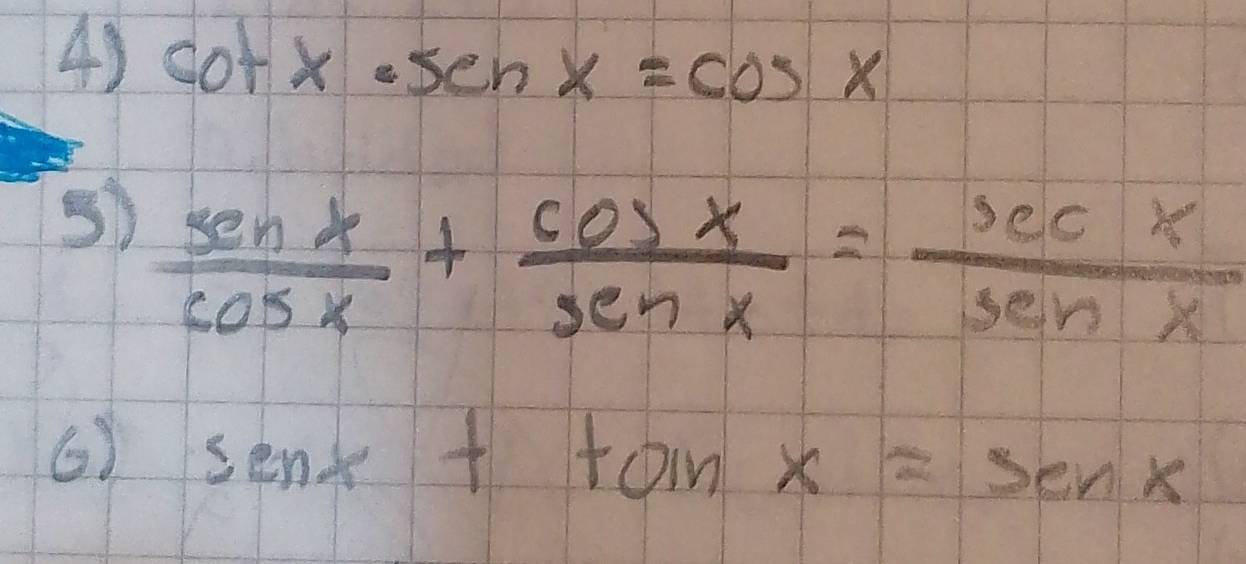 4) cot x · sen x = cos x
5) sen x / cos x + cos x / sen x = sec x / sen x
6) sen x + tan x = sen x